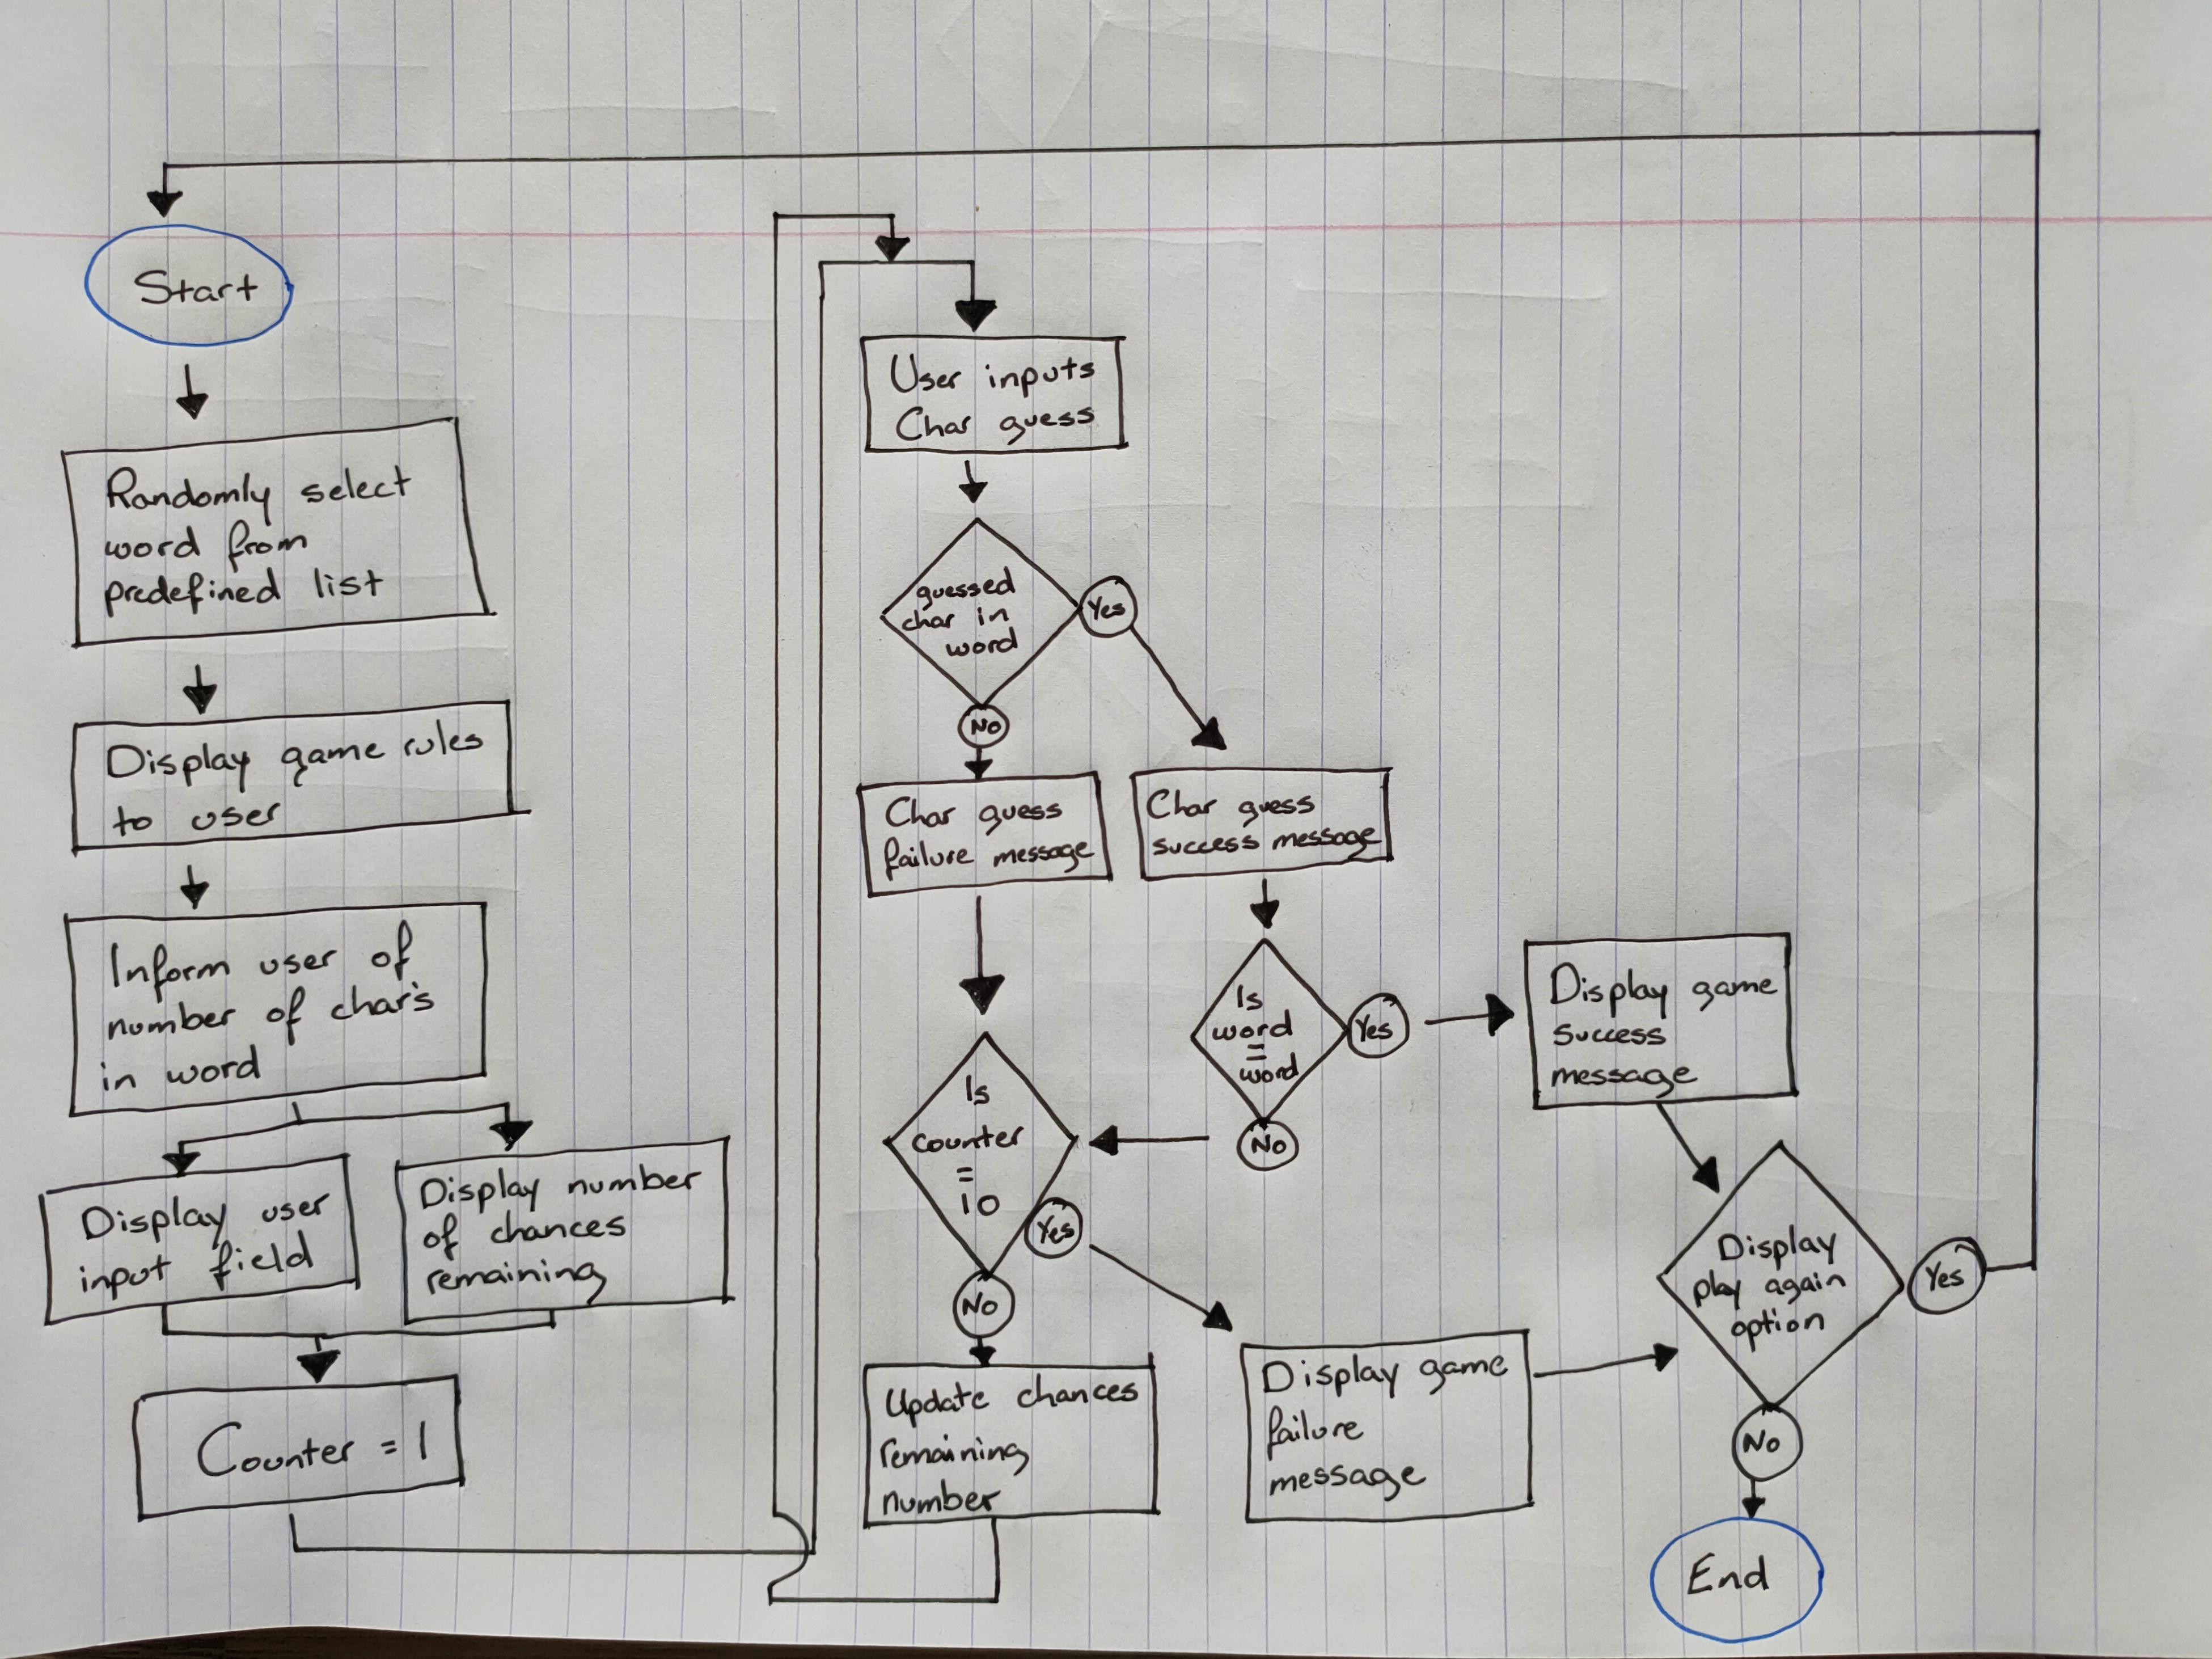 Start
Randomly select
word from
predefined list
Display game rules
to user
Inform user of
number of char's
in word
Display user
input field
Display number
of chances
remaining
Counter = 1
User inputs
Char guess
guessed
char in
word
Yes
No
Char guess
failure message
Char guess
success message
Is
word
=
word
Yes
No
Display game
success
message
Is
counter
=
10
Yes
No
Update chances
remaining
number
Display game
failure
message
Display
play again
option
Yes
No
End